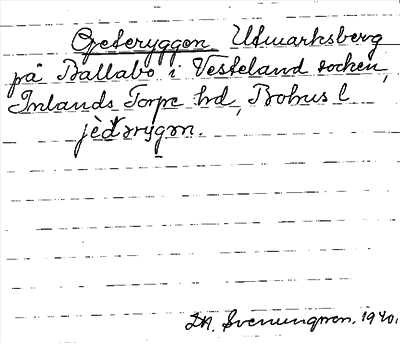 Geteryggen Utmarksberg
på Ballabo i Västeland socken,
Inlands Torpe hd, Bohus l
jètǝrygǝn.
Svenungsson. 1940.